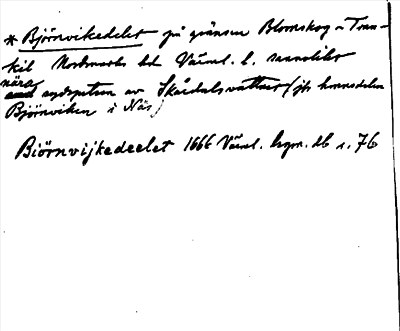 * Björnvikedelet på gränsen Blomskog – Tran-
kil Nordmarks hd Värml. l. sannolikt
nära sydspetsen av Skårdalsvattnet (jfr hemmdelen
Björnviken i Näs)
Biörnvijkedeelet 1666 Värml. hgm. db s. 76